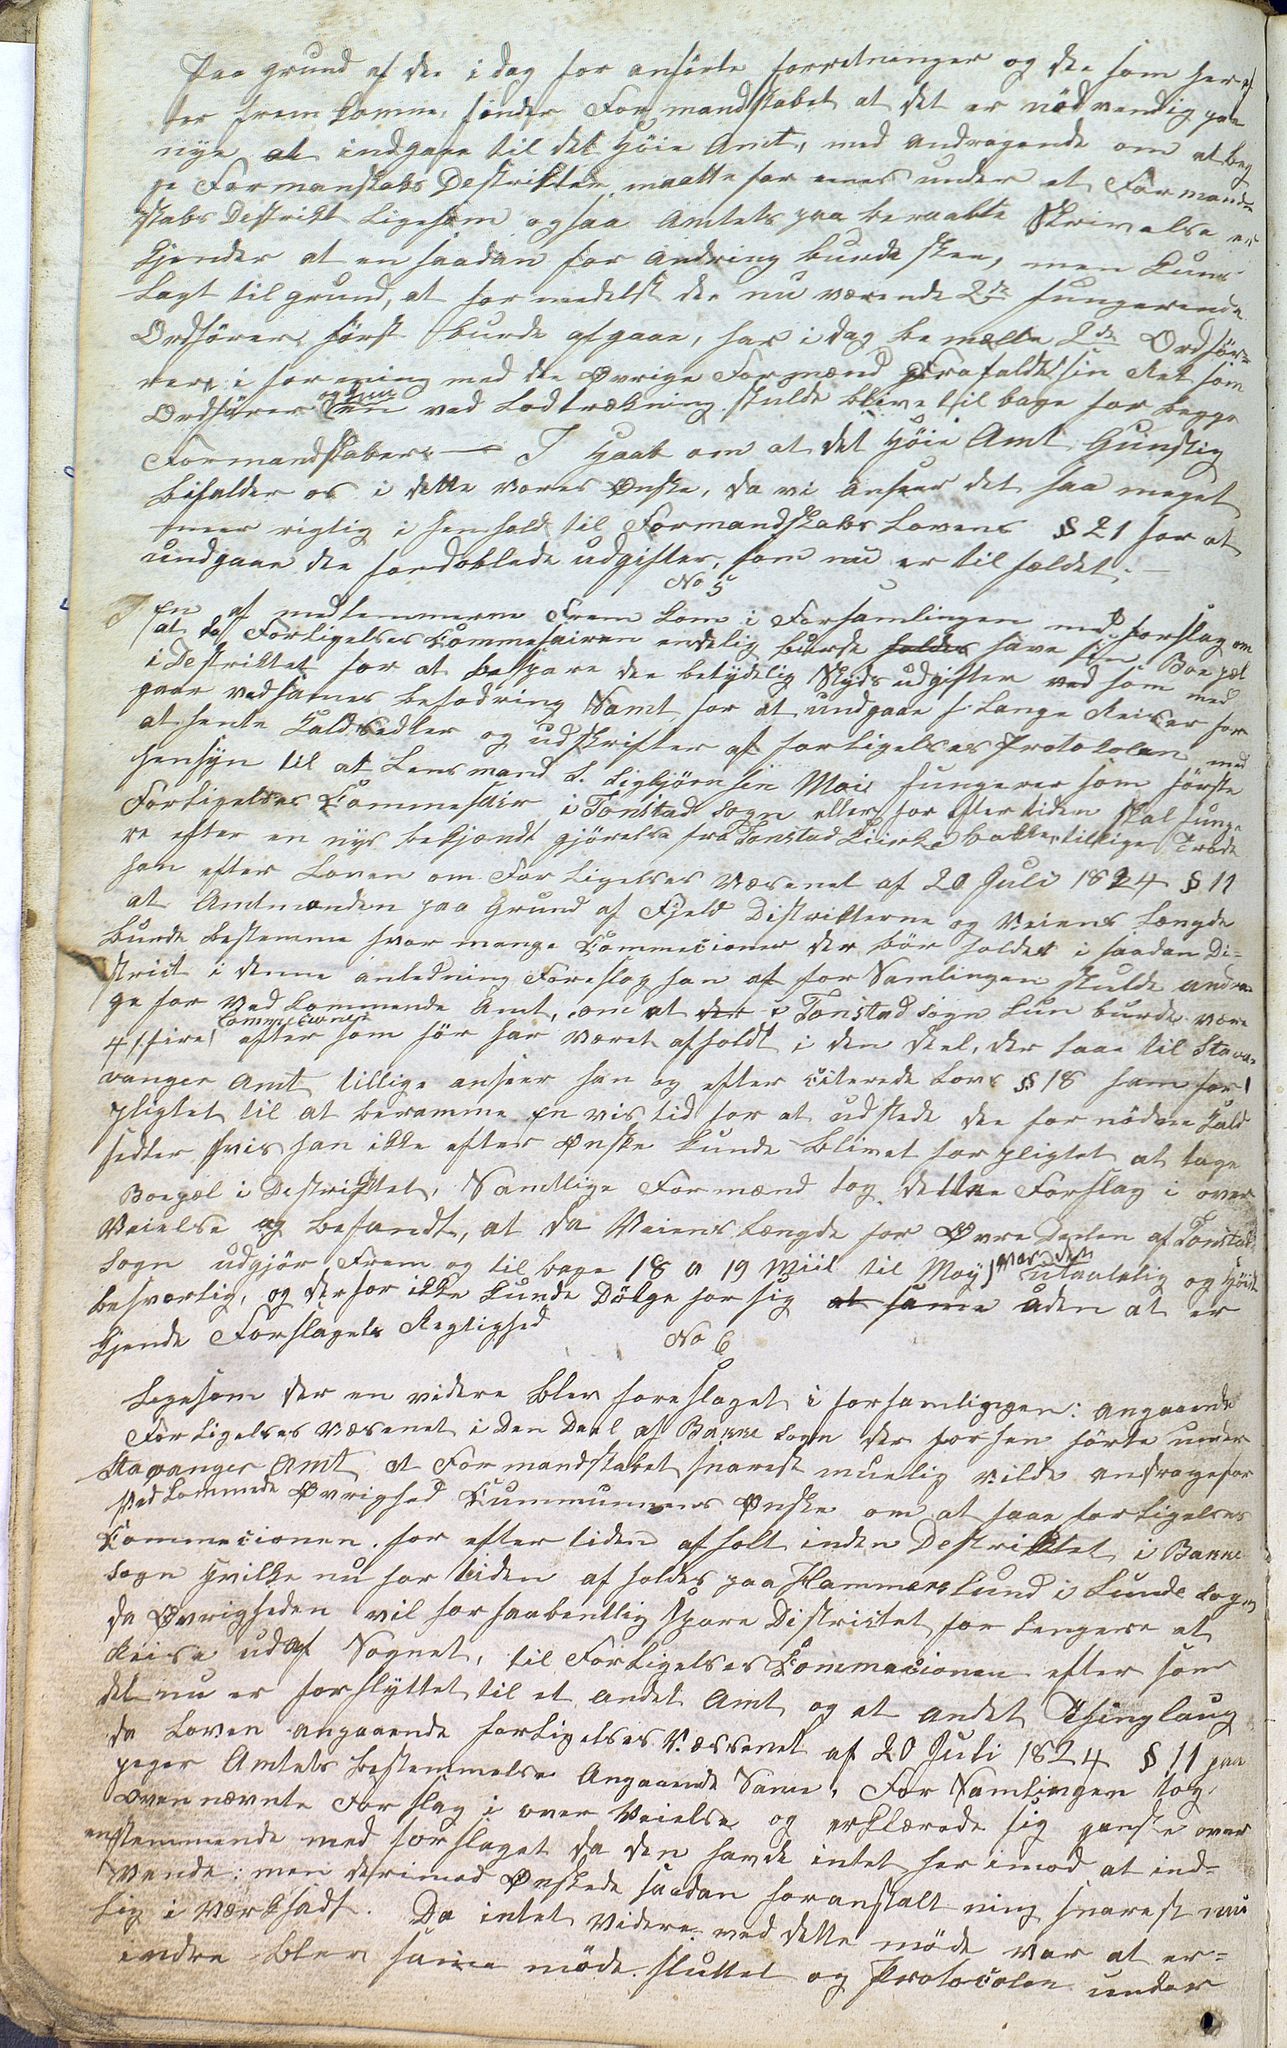 Paa grund af den i dag for anförte forretninger og den som her ef
ter frem komme, finder Formandskabet at det er nödvendig paa
nye at indgaae til det Höie Amt, med andragende om at beg
ge Formanskabs Destrikter maatte for enes under et Formand
skabs Destrikt ligesom ogsaa Amtets paa beraabte Skrivelse er
kjender at en saadan for andring burde skee, men kuns
lagt til grund, at for medelst den nu værende 2de fungerende
Ordförer först burde afgaae, har i dag be mælte 2de Ordför=
rere i forening med de Øvrige Formænd Frafaldt sin Ret som
Ordförer og kun en ved Lodtrækning skulde blive til bage for begge
Formandskaber. — I Haab om at det Höie Amt Gunstig
bifalder os i dette vores Ønske, da vi anseer det saa meget
mer rigtig i henhold til Formandskabs Lovens § 21 for at
undgaae de fordoblede udgifter, som nu er til fældet. —
No 5
En af medlemmerne Frem kom i Forsamlingen med forslag om
at da Forligelses Commesairen endelig burde holdes have sin Boe pæl
i Destriktet for at bespare den betydelig Skyds udgifter ved som med
gaar ved sames befodring Samt for at undgaae s. lange Reiser for
at hente Kaldsedler og udskrifter af forligelses Protokolen, med
hensyn til at Lensmand S. Sigbjörnsen Moi fungerer som förste
Forligelses Commesair i Tonstad Sogn eller for eftertiden skal funge
re efter en nys bekjændt gjörelse fra Tonstad Kirke bakke, tillige Trode
han efter Loven om Forligelses Væsenet af 20 Juli 1824 § 11
at Amtmanden paa Grund af Fjeld Distrikterne og Veiens Længde
burde bestemme hvor mange Commecioner der bör holdes i saadan Di=
strict i denne anledning Foreslog han at for Samlingen skulde andra
ge for Ved kommende Amt, om at der i Tonstad Sogn kun burde være
4 (fire) Commecioner efter som för har været afholdt i den deel, der laae til Stava
vanger Amt tillige anseer han og efter citerede Lovs § 18 ham for
pligtet til at beramme En vis tid for at udstede den for nödne Kald
sedler hvis han ikke efter Ønske kunde blivet forpligtet at tage
Boepæl i Destriktet, Samtlige Formænd tog dette Forslag i over
Veielse og befandt, at da Veiens Længde for Øvre Deelen af Tonstad
Sogn udgjör Frem og til bage 18 a 19 Miil til Moy, var den utaalelig og Höist
besværlig, og derfor ikke kunde Dölge for sig at same uden at er
kjende Forslagets Regtighed
No 6
Ligesom der en videre blev foreslaget i forsamlingen: angaaende
Forligelses Væsenet i Den Deel af Bakke Sogn der forhen hörte under
Stavanger Amt at Formandskabet snarest muelig vilde andrage for
Vedkommende Øvrighed Kummunens Ønske om at faae forligelses
Commecionen for eftertiden afholt inden Destriktet i Bakke
Sogn hvilke nu for tiden af holdes paa Hammerslund i Lunde Sogn
da Øvrigheden vil forhaabentlig spare Districtet for længere at
Reise ud af Sognet, til Forligelses Commecionen efter som
det nu er forflyttet til et andet Amt og et andet Thinglaug
da Loven angaaende forligelses Væssenet af 20 Juli 1824 § 11 paa
peger Amtets bestemmelse Angaaende Same, For Samlingen tog
oven nævnte Forslag i over Veielse og erklærede sig ganske over
enstemmende med forslaget da den havde intet her imod at ind=
vende: men derimod Ønskede saadan foranstaltning snarest mu
lig i Værksadt. Da intet Videre ved dette möde var at er=
indre blev same möde sluttet og Protocolen under